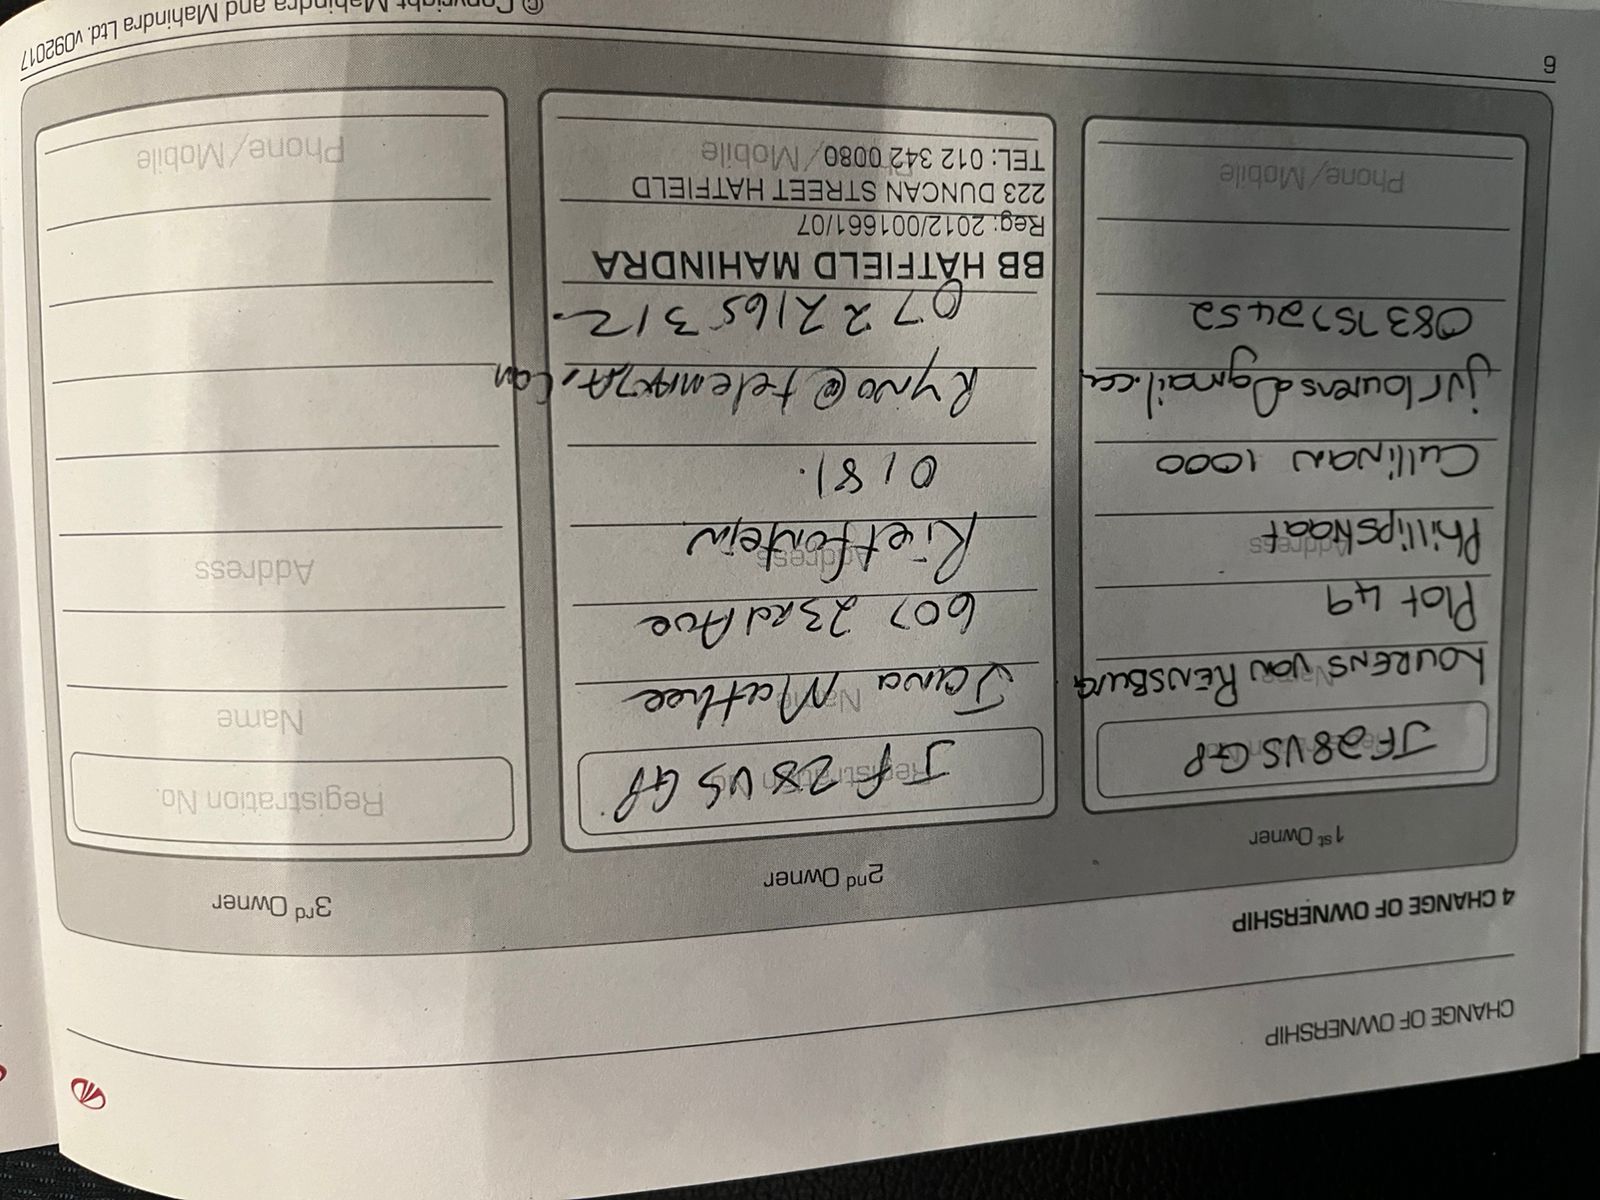 CHANGE OF OWNERSHIP
4 CHANGE OF OWNERSHIP
1st Owner
Registration No.
JF28VSGP
Name
LOURENS VAN RENSBURG
Plot 49
Address
PhillipsNaat
Cullinan 1000
jvrlourens@gmail.co
0837572452
Phone/Mobile
2nd Owner
Registration No.
JF28VS GP.
Name
Jana Mathee
607 23rd Ave
Address
Rietfontein
0181.
Ryno@telematza.com
0722165312.
BB HATFIELD MAHINDRA
Reg: 2012/001661/07
223 DUNCAN STREET HATFIELD
TEL: 012 342 0080
Phone/Mobile
3rd Owner
Registration No.
Name
Address
Phone/Mobile
6
© Copyright Mahindra and Mahindra Ltd. v092017